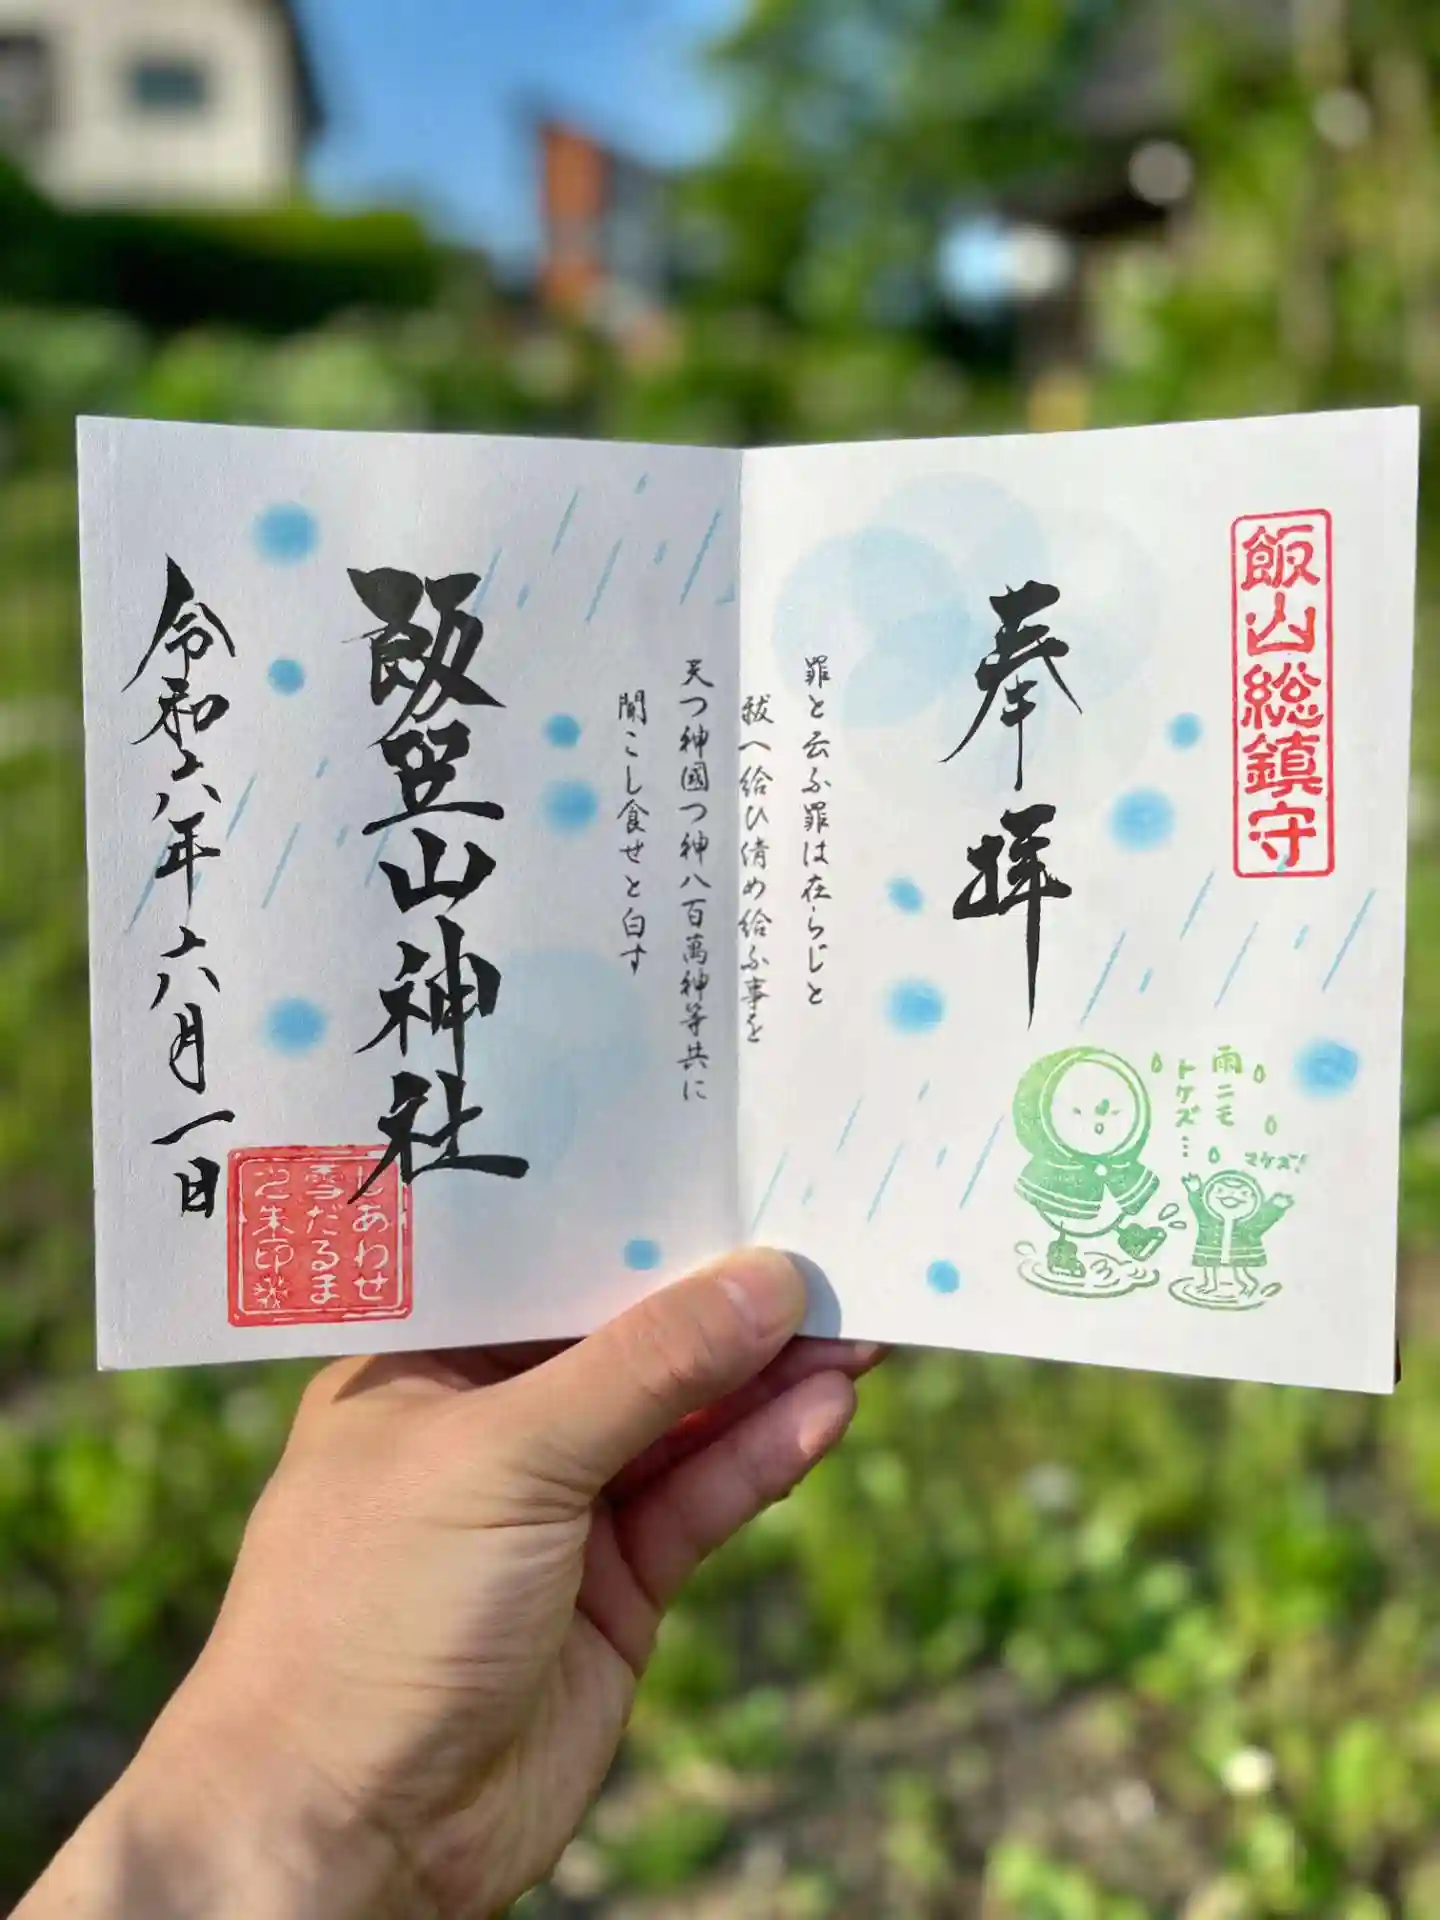 飯山総鎮守
奉拝
罪と云ふ罪は在らじと
祓へ給ひ清め給ふ事を
天つ神國つ神八百萬神等共に
聞こし食せと白す
飯笠山神社
令和六年六月一日
しあわせ
雪だるま
之朱印
雨ニモ
トケズ…
マケズ!